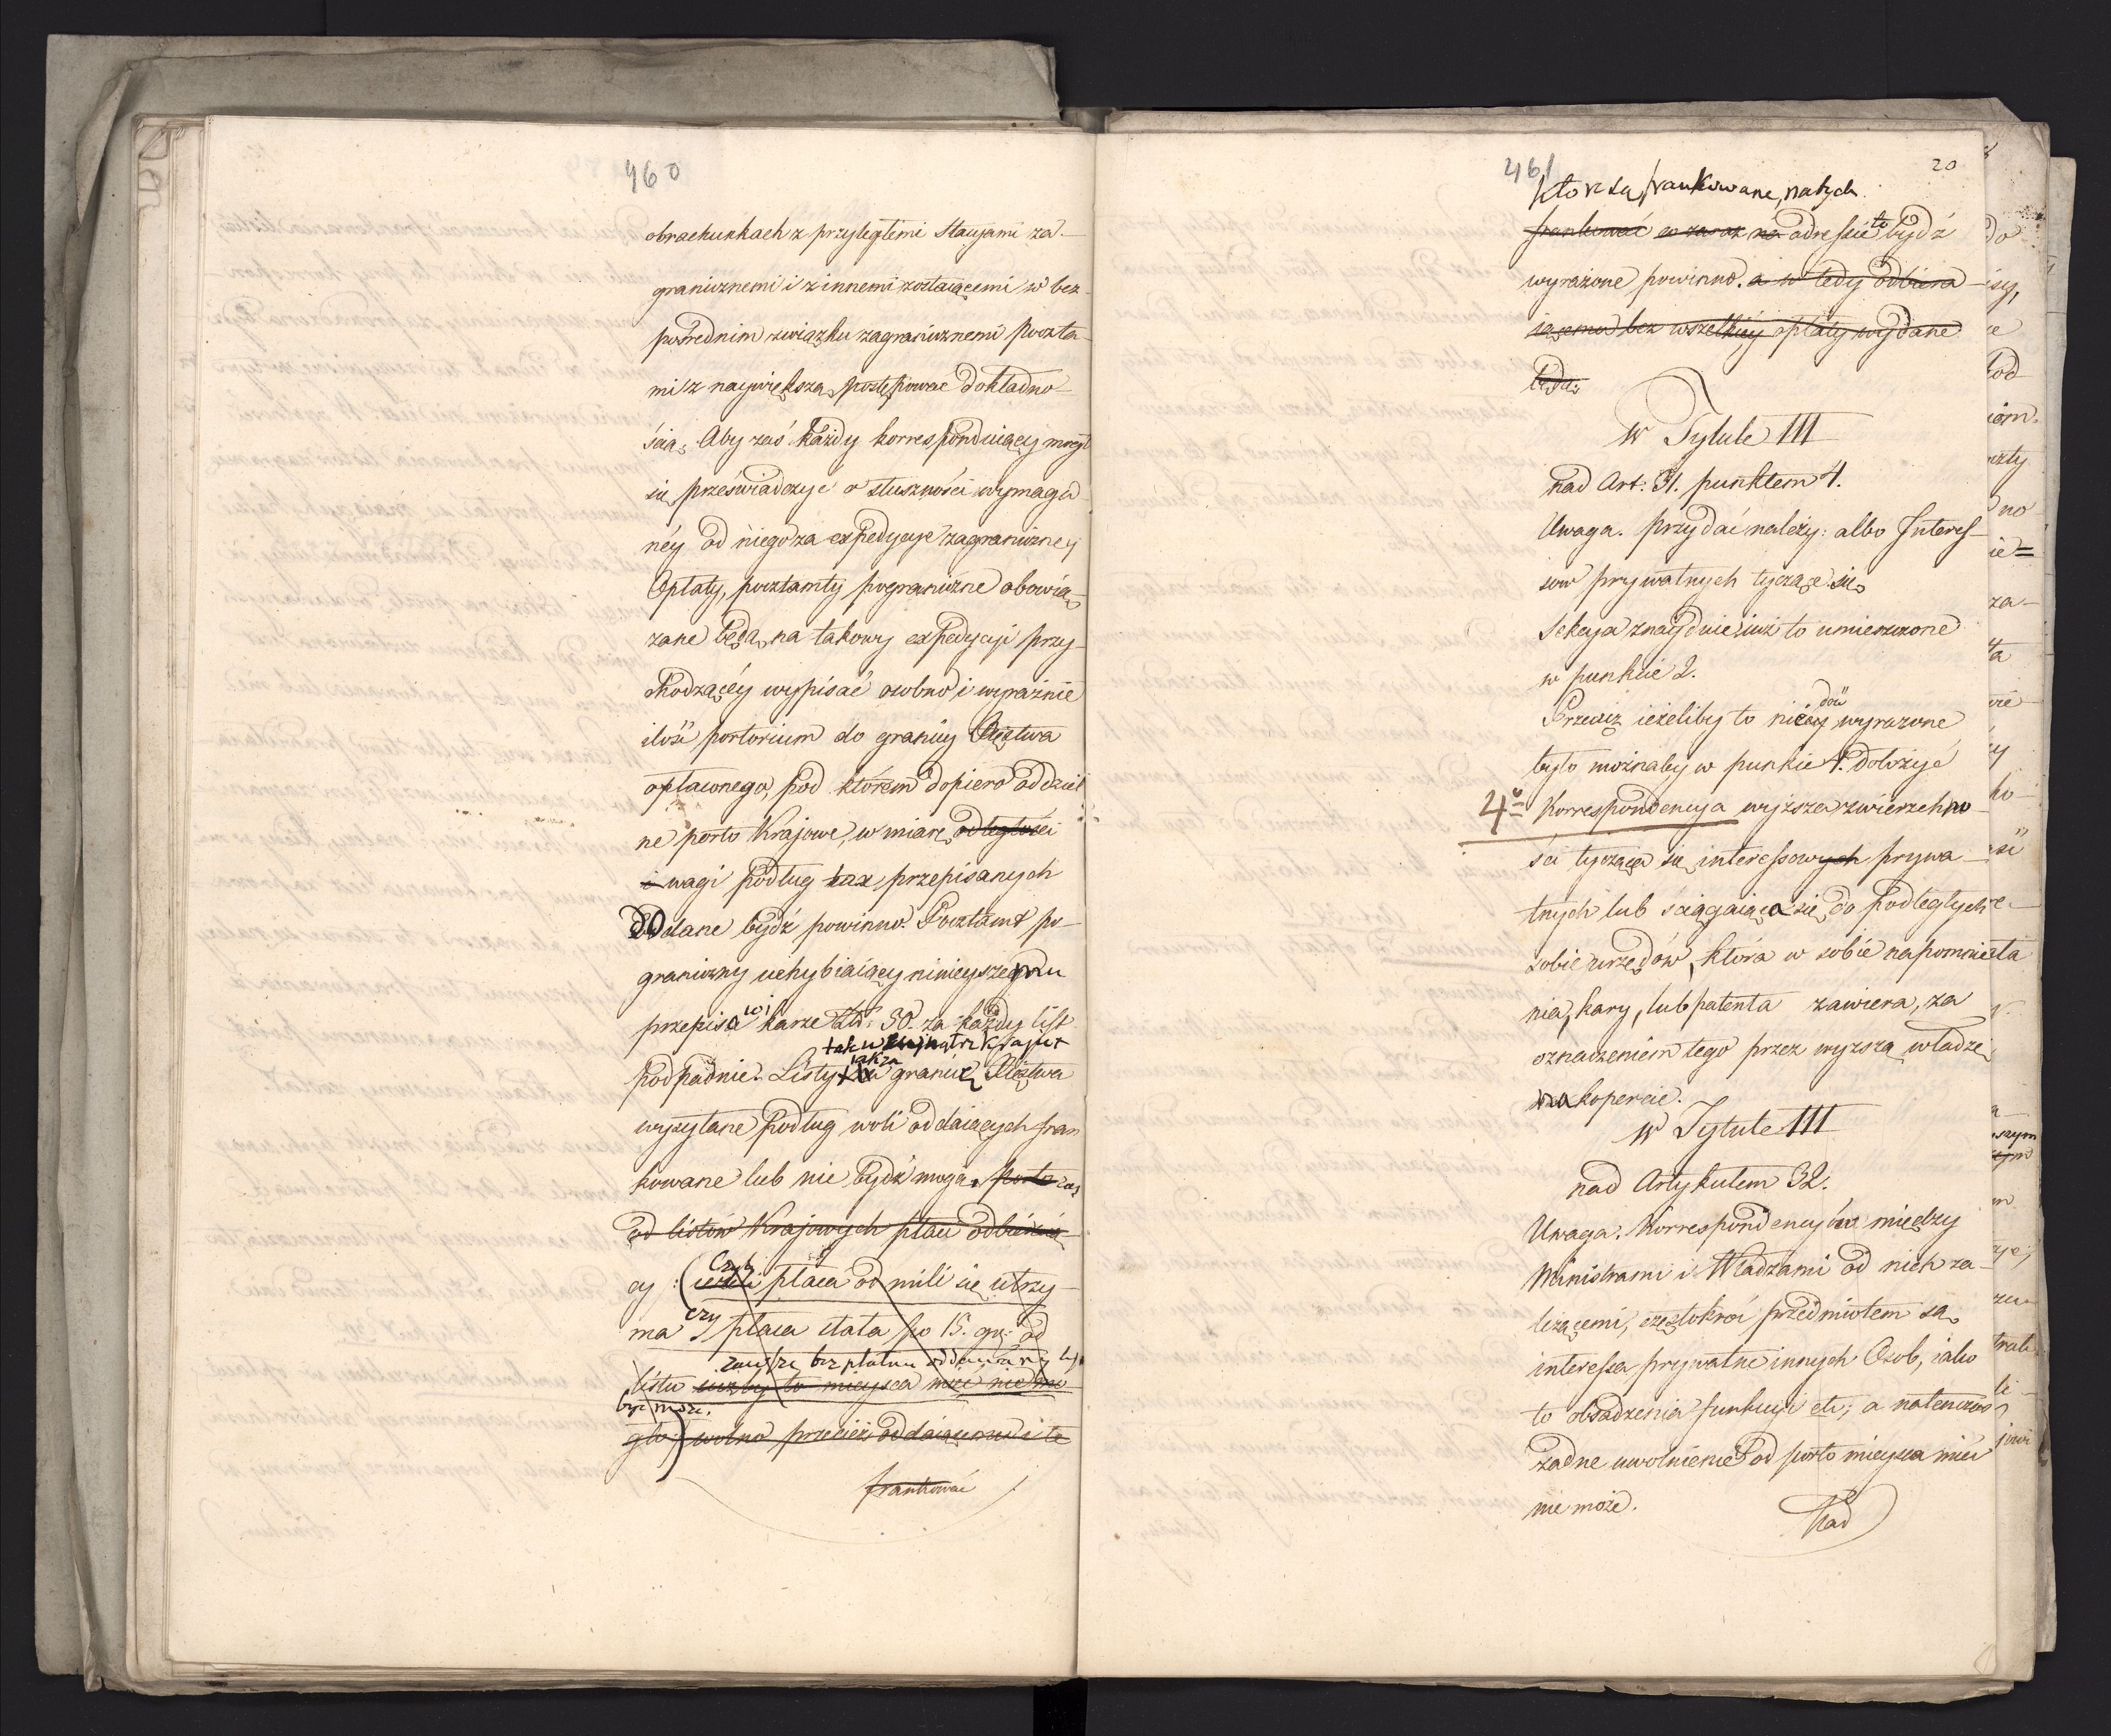 460
obrachunkach z przyległemi Stacyjami za-
granicznemi i z innemi zostaiącemi w bez-
pośrednim związku zagranicznemi poczta-
mi z naywiększą postępować dokładno-
ścią. Aby zaś każdy korrespónduiący mógł
się przeświadczyć o słuszności wymaga-
néy od niego za expedycyje zagraniczney
Opłaty, pocztamty pograniczne obowią-
zane będą na takowy expedycyi przy-
chodzącéy wypisać osobno i wyraźnie
ilość portorium do granicy Xięztwa
opłaconego, pod którem dopiero oddziel-
ne porto Krajowe, w miarę odległości
i wagi podług tax przepisanych
dodane bydź powinno. Pocztamt po-
graniczny uchybiaiący ninieyszemu
przepisowi karze Złł: 30. za każdy list
tak wewnątrz Kraju
jak za
podpadnie. Listy za granicę Xięztwa
wysyłane podług woli oddaiących fran-
kowane lub nie bydź mogą, porto zaś
od listów Krajowych płaci odbieraią-
cy: (jeżeli płaca od mili się utrzy-
czy
ma czy płaca stała po 15. gr: od
listu inaczéy to mieysca mieć nie mo-
być może.
gło) wolno przecież oddaiącemu i te
frankować
461
20
które są frankowane, na tych
frankować co zaraz na adressie to bydź
wyrażone powinno. a w tedy odbiera-
iącemu bez wszelkiéy opłaty wydane
będą.
W Tytule III
nad Art: 31. punktem 4.
Uwaga. przydać należy: albo Interes-
sów prywatnych tyczące się
Sekcya znayduie iuż to umieszczone
w punkcie 2.
Przecież ieżeliby to nie dość wyrażone
było możnaby w punkcie 4. dołożyć
4o Korrespondencya wyższéy zwierzchno-
ści tycząca się interessowych prywa-
tnych lub ściągaiąca się do podległych
sobie urzędów, która w sobie napomnie-
nia, kary, lub patenta zawiera, za
oznaczeniem tego przez wyższą władzę
na kopercie.
W Tytule III
nad Artykułem 32.
Uwaga. Korrespondencyów między
Ministrami i Władzami od nich za-
leżącemi, częstokroć przedmiotem są
interessa prywatne innych Osób, iako
to obsadzenia funkcyi etc; a natenczas
żadne uwolnienie od porto mieysca mieć
nie może.
Nad